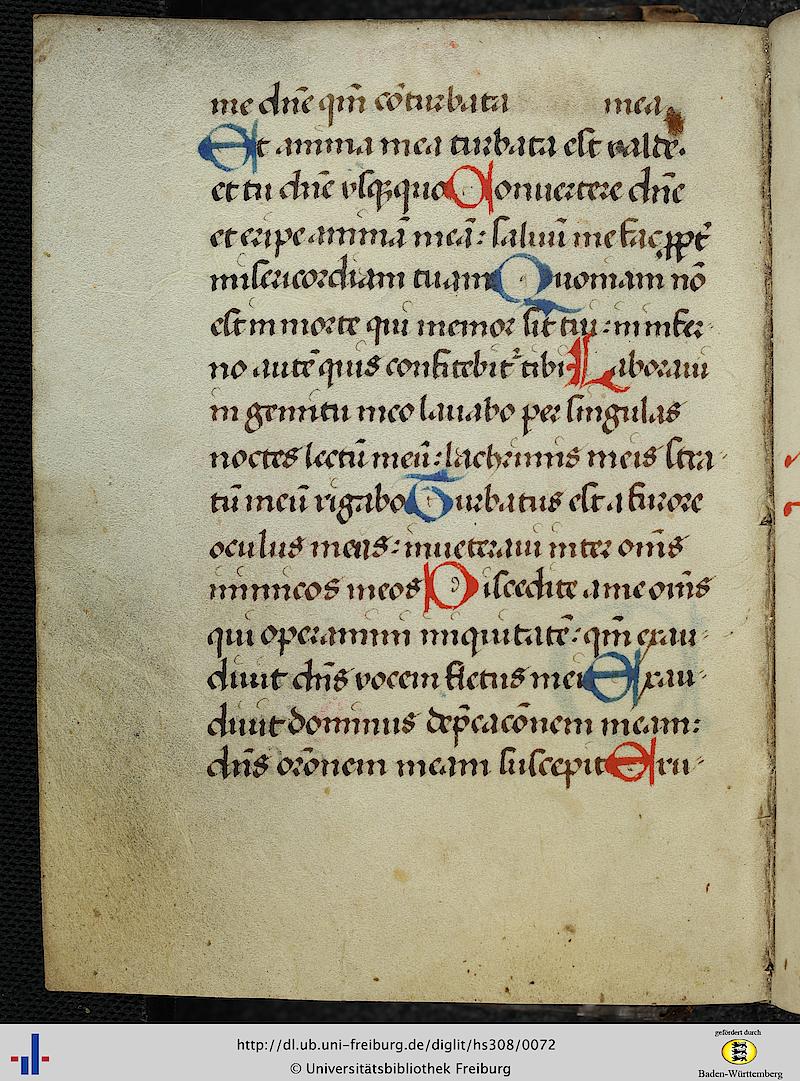 me dñe qm̃ cõturbata mea
Et anima mea turbata est valde.
et tu dñe vsq;quo Conuertere dñe
et eripe animã meã: saluũ me fac ꝓpt̃
misericordiam tuam Quoniam nõ
est in morte qui memor sit tui: in infer-
no autẽ quis confitebit᷑ tibi Laboraui
in gemitu meo lauabo per singulas
noctes lectũ meũ: lachrimis meis stra-
tũ meũ rigabo Turbatus est a furore
oculus meus: inueteraui inter oms̃
inimicos meos Discedite a me oms̃
qui operamini iniquitatẽ: qm̃ exau-
diuit dñs vocem fletus mei Exau-
diuit dominus dep̃cacõnem meam:
dñs orõnem meam suscepit Eru-
http://dl.ub.uni-freiburg.de/diglit/hs308/0072
© Universitätsbibliothek Freiburg
gefördert durch
Baden-Württemberg